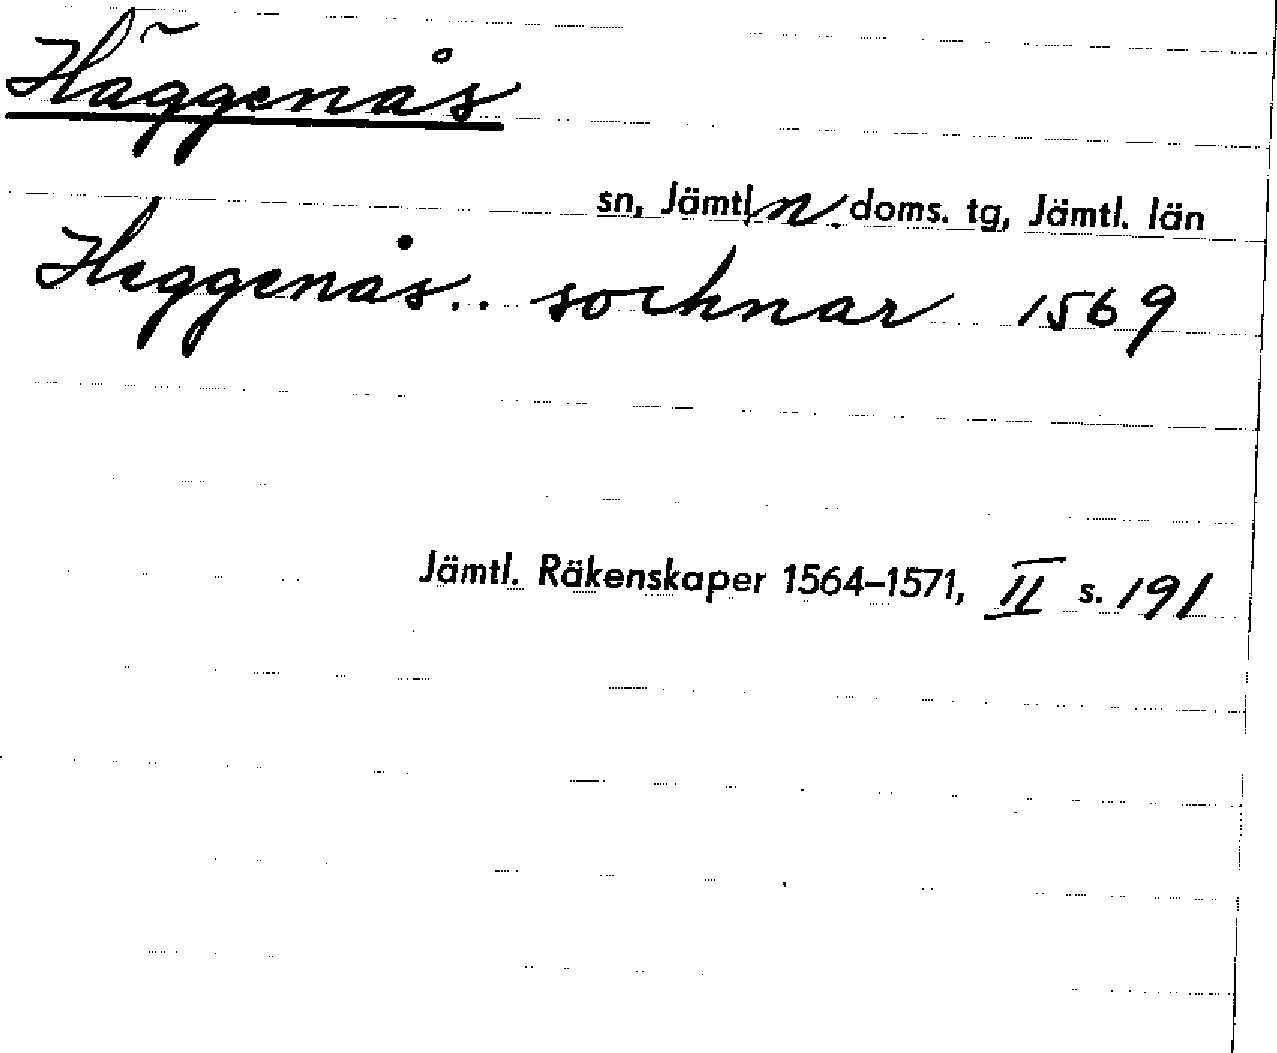 Häggenås
sn, Jämtl. n. doms. tg, Jämtl. län
Heggenås.. sochnar 1569
Jämtl. Räkenskaper 1564–1571, II s. 191